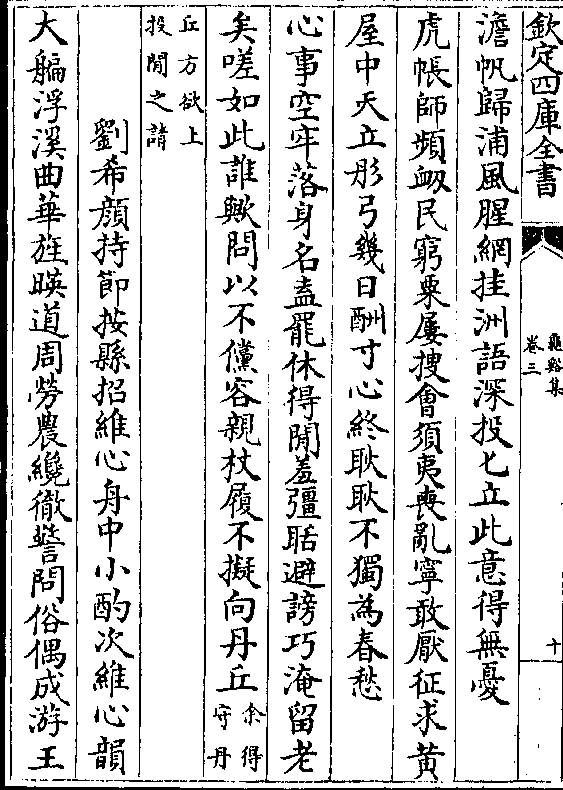 欽定四庫全書
龜谿集
卷三
十
澹帆歸浦風腥網挂洲語深投匕立此意得無憂
虎帳師頻衂民窮粟屢搜會須夷喪亂寧敢厭征求黄
屋中天立彤弓幾日酬寸心終耿耿不獨為春愁
心事空牢落身名盍罷休得閒羞彊聒避謗巧淹留老
矣嗟如此誰歟問以不儻容親杖履不擬向丹丘余得守丹
丘方欲上投閒之請
劉希顔持節按縣招維心舟中小酌次維心韻
大艑浮溪曲華旌暎道周勞農纔徹警問俗偶成游王